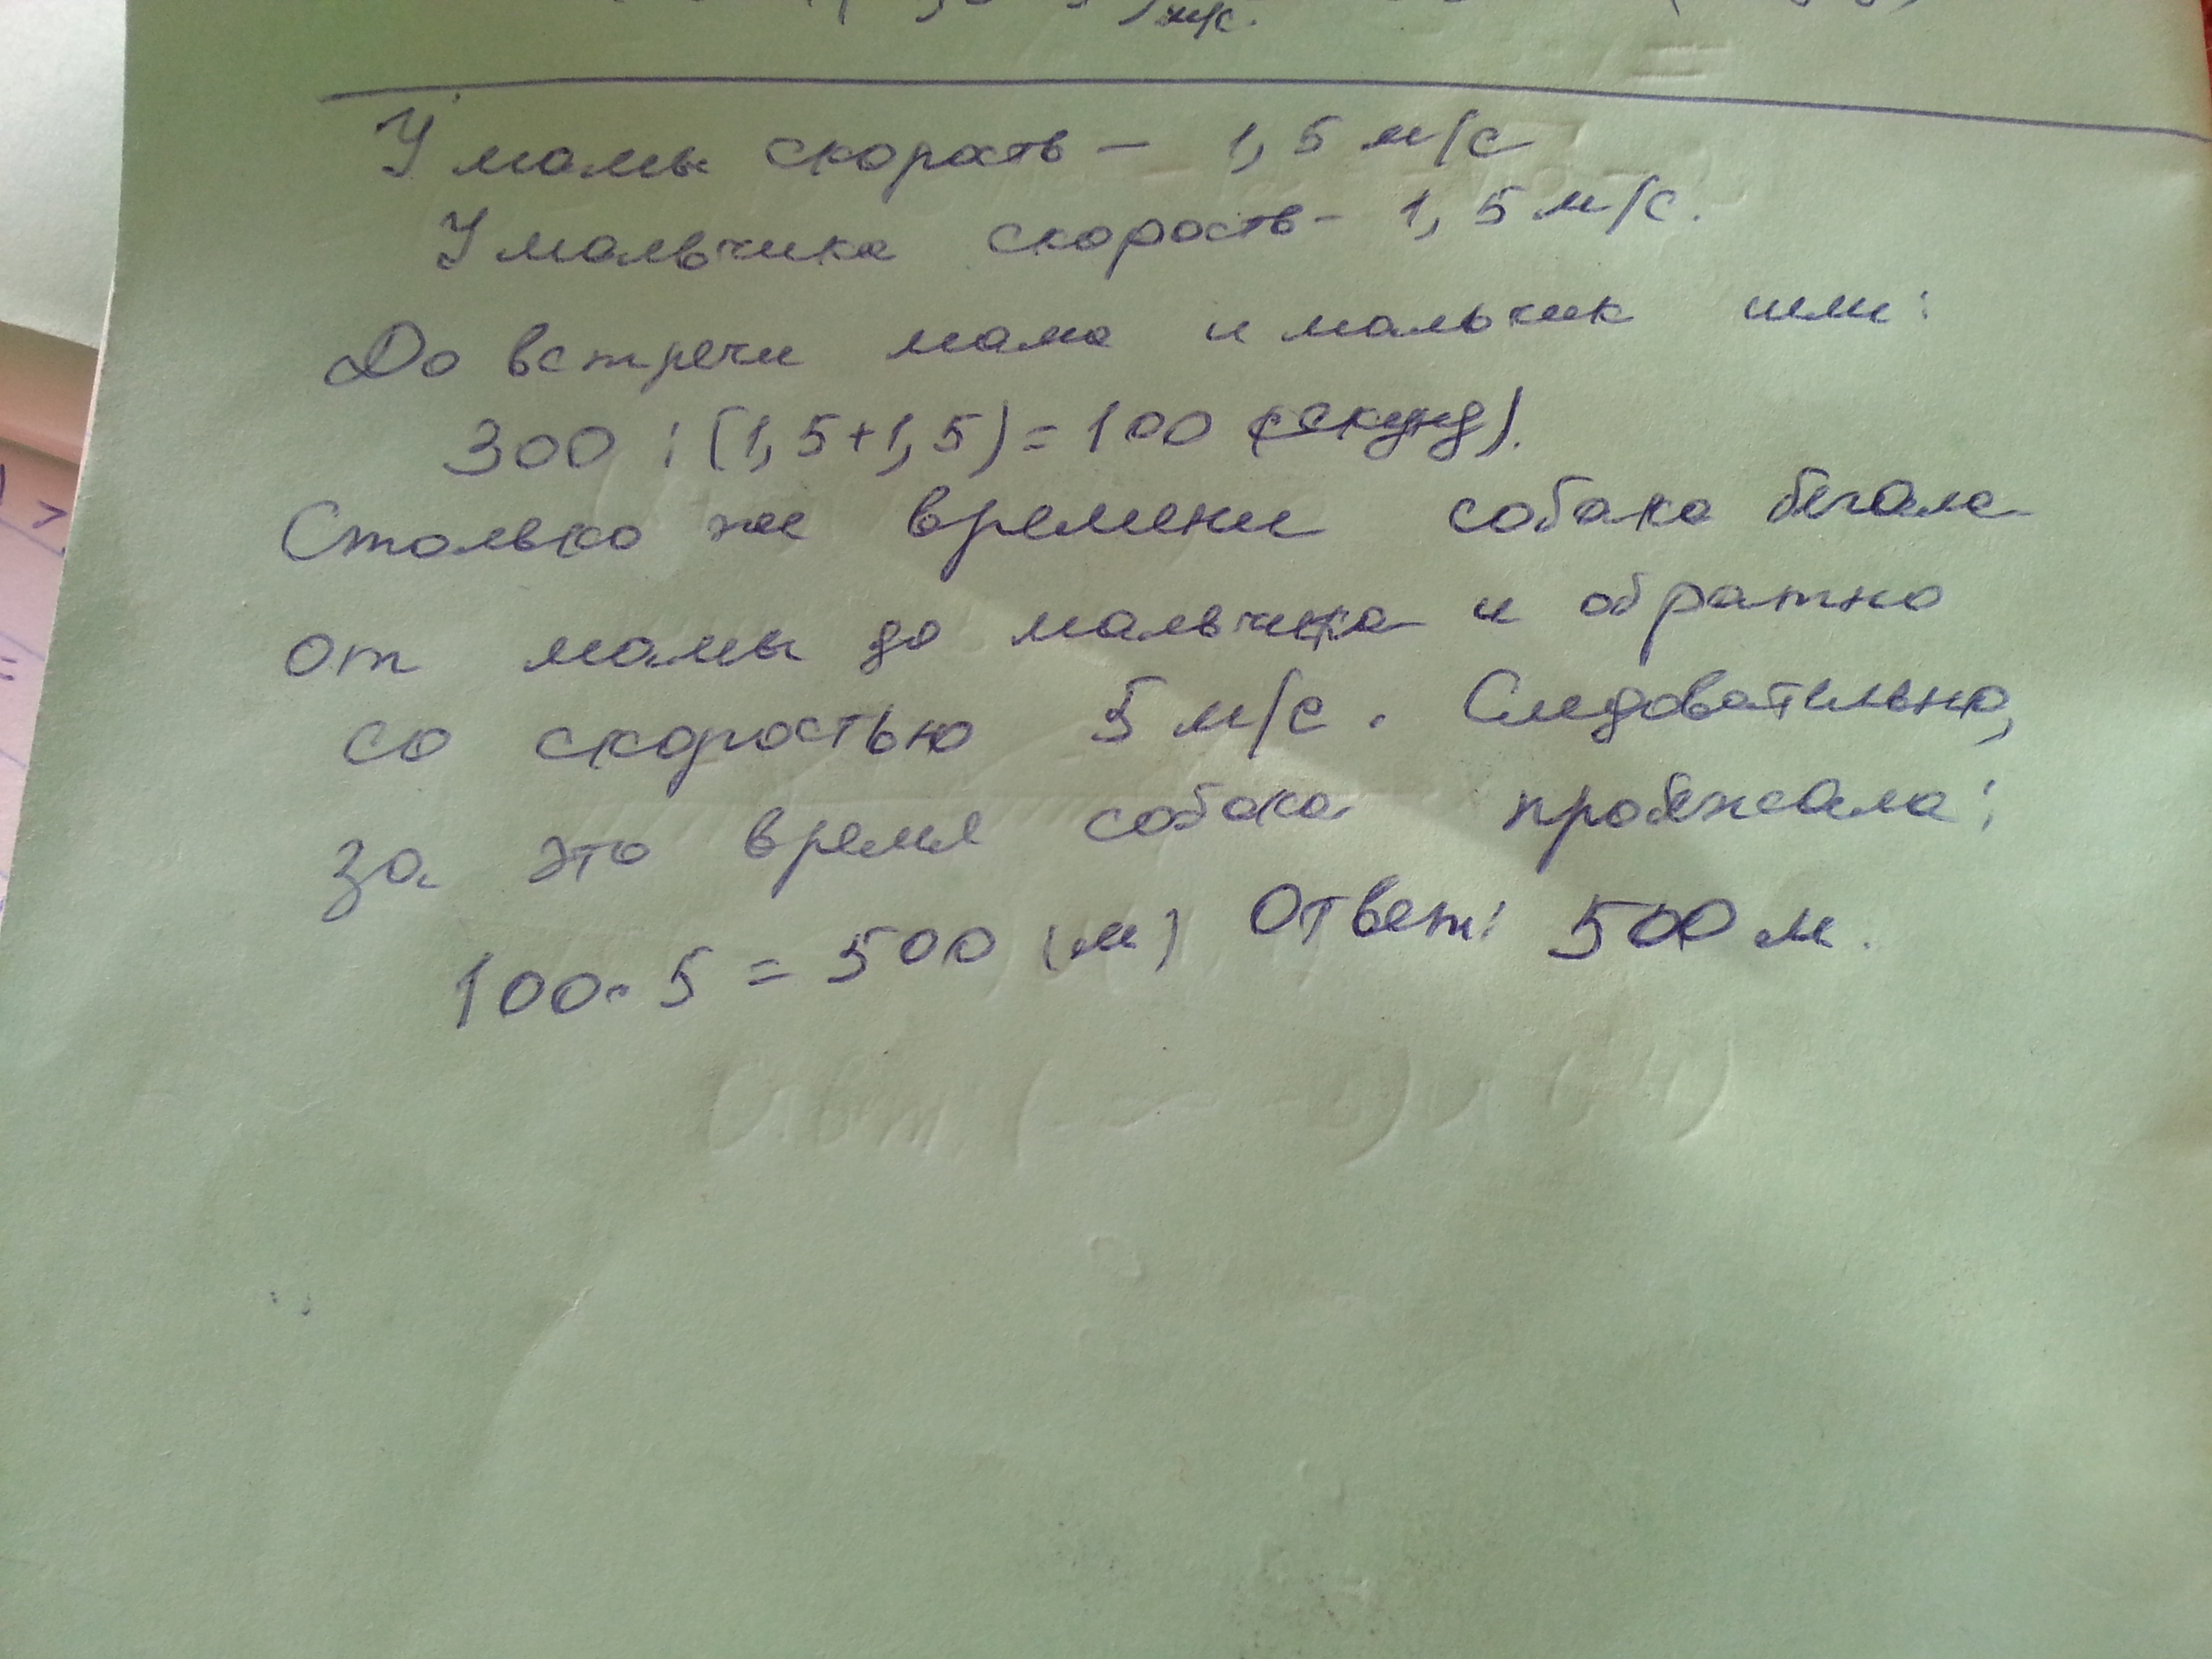 м/с.
У мамы скорость — 1,5 м/с
У мальчика скорость - 1,5 м/с.
До встречи мама и мальчик шли:
300 : (1,5+1,5) = 100 (секунд).
Столько же времени собака бегала
от мамы до мальчика и обратно
со скоростью 5 м/с. Следовательно,
за это время собака пробежала:
100 · 5 = 500 (м) Ответ: 500 м.